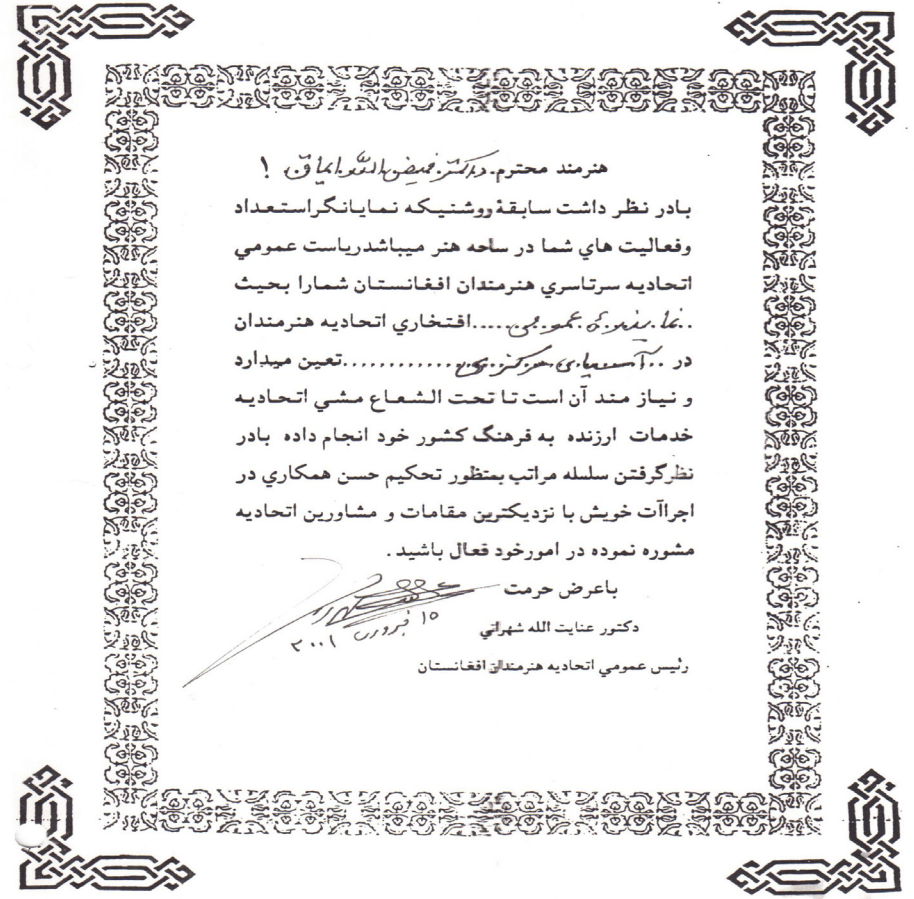 هنرمند محترم. داکتر فیض الله ایماق !
بادر نظر داشت سابقهٔ روشنیکه نمایانگراستعداد
وفعالیت های شما در ساحه هنر میباشدریاست عمومي
اتحادیه سرتاسري هنرمندان افغانستان شمارا بحیث
..نمایندهٔ عمومی.....افتخاري اتحادیه هنرمندان
در ..آسیای مرکزی............تعین میدارد
و نیاز مند آن است تا تحت الشعاع مشي اتحادیه
خدمات ارزنده به فرهنگ کشور خود انجام داده بادر
نظرگرفتن سلسله مراتب بمنظور تحکیم حسن همکاري در
اجراآت خویش با نزدیکترین مقامات و مشاورین اتحادیه
مشوره نموده در امورخود فعال باشید .
باعرض حرمت
۱۵ فبروری ۲۰۰۱
دکتور عنایت الله شهراني
رئیس عمومي اتحادیه هنرمندان افغانستان